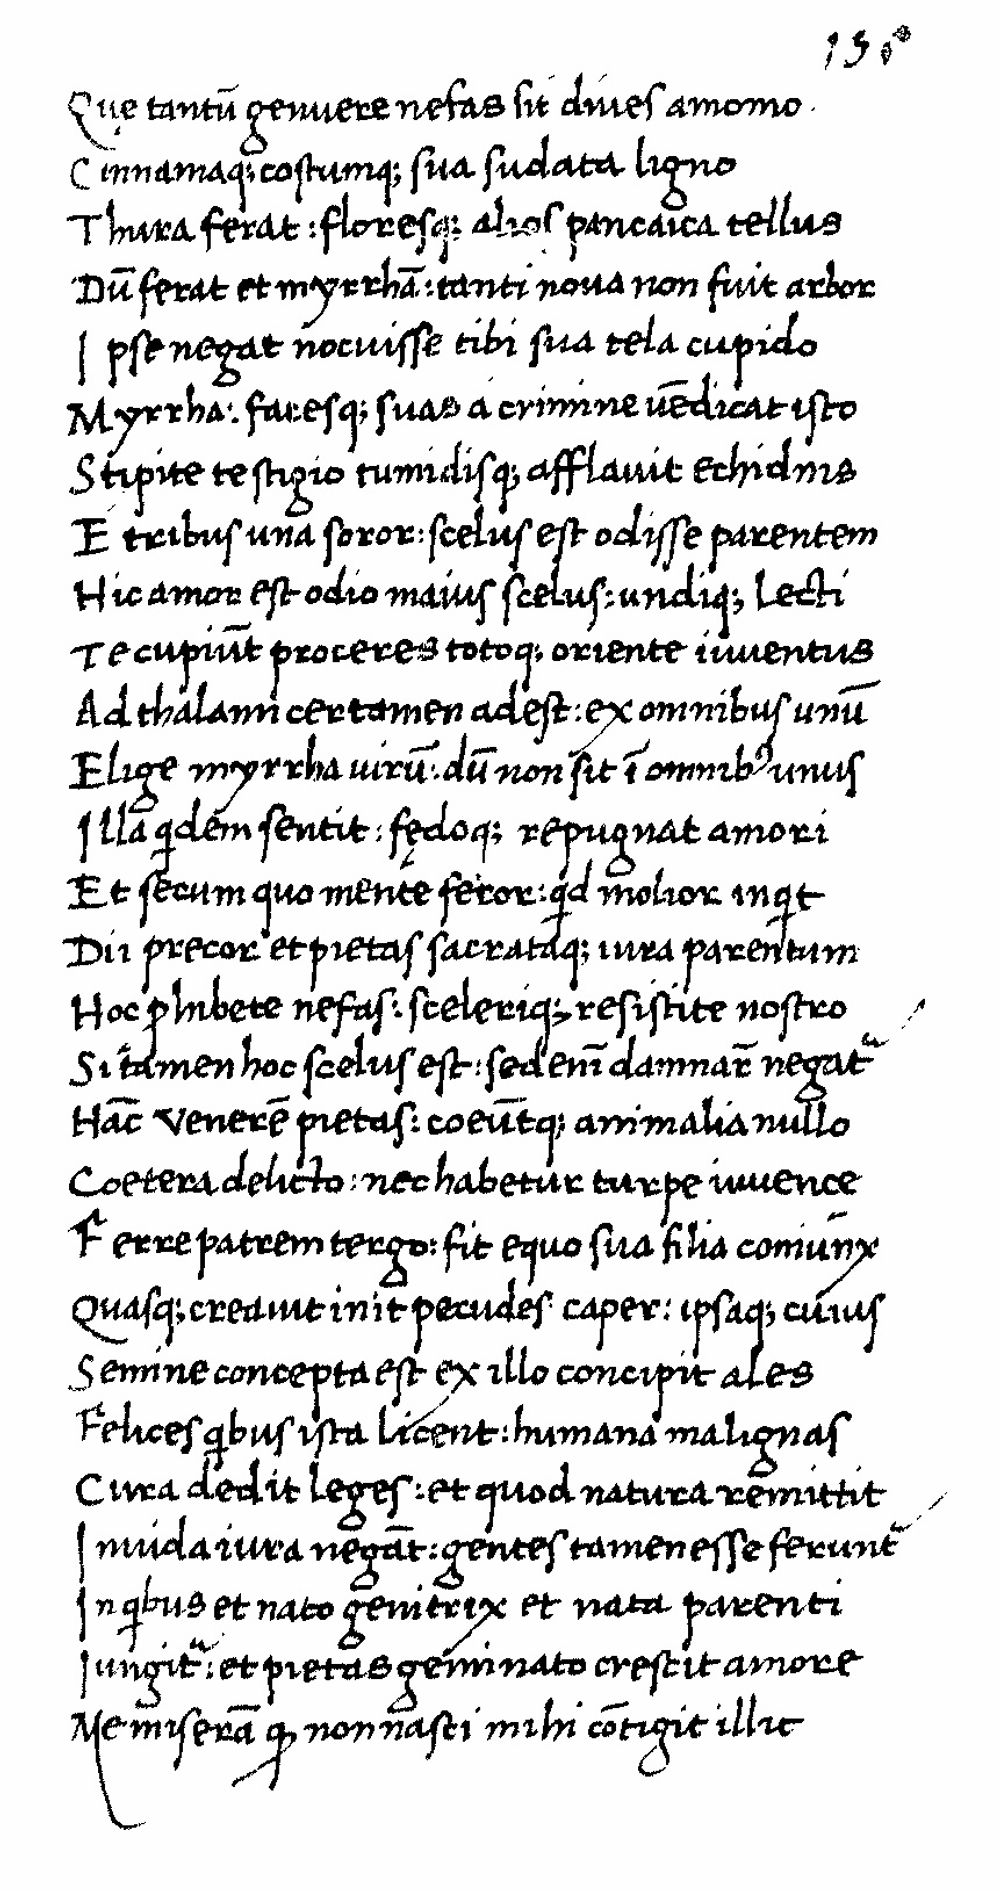 Quę tantū genuere nefas sit diues amomo.
Cinnamaq; costumq; sua sudata ligno
Thura ferat: floresq; alios pancaica tellus
Dū ferat et myrrhā: tanti noua non fuit arbor
Ipse negat nocuisse tibi sua tela cupido
Myrrha: facesq; suas a crimine uēdicat isto
Stipite te stigio tumidisq; afflauit echidnis
E tribus una soror: scelus est odisse parentem
Hic amor est odio maius scelus: undiq; lecti
Te cupiūt proceres totoq; oriente iuuentus
Ad thalami certamen adest: ex omnibus unū
Elige myrrha uirū: dū non sit ī omnib⁹ unus
Illa qdem sentit: fędoq; repugnat amori
Et secum quo mente feror: qd molior inqt
Dii precor et pietas sacrataq; iura parentum
Hoc phibete nefas: sceleriq; resistite nostro
Si tamen hoc scelus est: sed enī damnar̄ negat᷑
Hāc Venerē pietas: coeūtq; animalia nullo
Coetera delicto: nec habetur turpe iuuence
Ferre patrem tergo: fit equo sua filia coniūnx
Quasq; creauit init pecudes caper: ipsaq; cuius
Semine concepta est ex illo concipit ales
Felices qbus ista licent: humana malignas
Cura dedit leges: et quod natura remittit
Inuida iura negāt: gentes tamen esse ferunt᷑
In qbus et nato genitrix et nata parenti
Iungit᷑: et pietas geminato crescit amore
Me miserā ꝙ non nasci mihi cōtigit illic